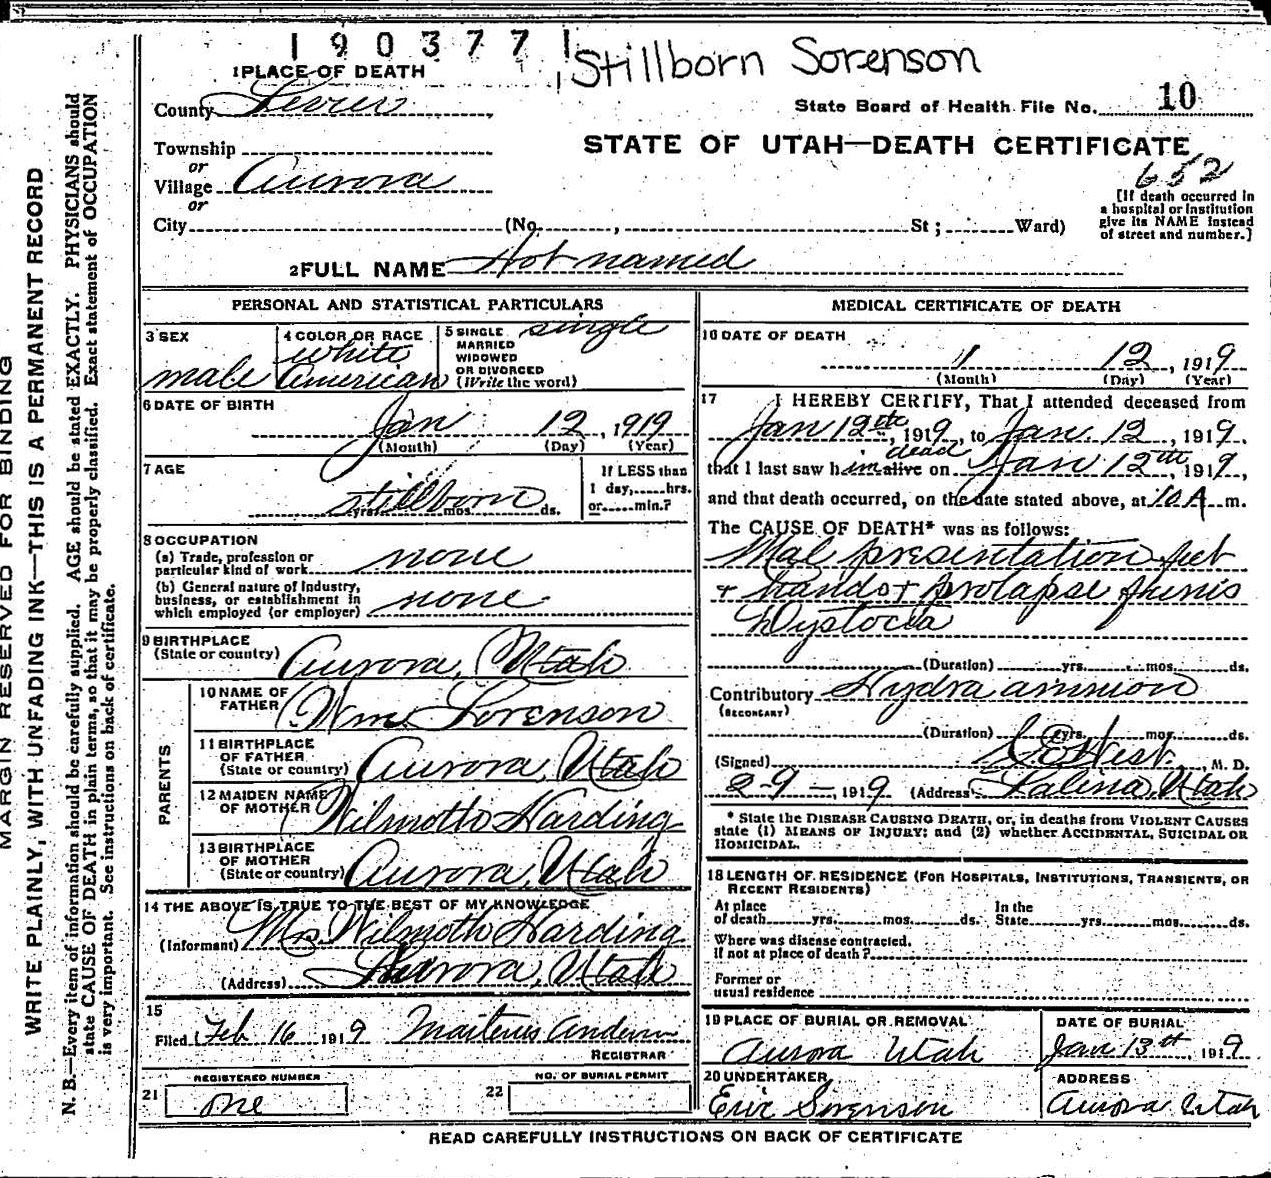 1903771
Stillborn Sorenson
1 PLACE OF DEATH
County Sevier
State Board of Health File No. 10
Township
or
STATE OF UTAH—DEATH CERTIFICATE
652
Village Aurora
or
City (No. , St ; Ward)
[If death occurred in
a hospital or institution
give its NAME instead
of street and number.]
2 FULL NAME Not named
PERSONAL AND STATISTICAL PARTICULARS
3 SEX
male
4 COLOR OR RACE
white
American
5 SINGLE
MARRIED
WIDOWED
OR DIVORCED
(Write the word)
single
6 DATE OF BIRTH
Jan 12, 1919
(Month) (Day) (Year)
7 AGE
stillborn
yrs. mos. ds.
If LESS than
1 day, hrs.
or min.?
8 OCCUPATION
(a) Trade, profession or
particular kind of work none
(b) General nature of industry,
business, or establishment in
which employed (or employer) none
9 BIRTHPLACE
(State or country) Aurora, Utah
PARENTS
10 NAME OF
FATHER Wm. Sorenson
11 BIRTHPLACE
OF FATHER
(State or country) Aurora, Utah
12 MAIDEN NAME
OF MOTHER Wilmoth Harding
13 BIRTHPLACE
OF MOTHER
(State or country) Aurora, Utah
14 THE ABOVE IS TRUE TO THE BEST OF MY KNOWLEDGE
(Informant) Mrs Wilmoth Harding
(Address) Aurora, Utah
15
Filed Feb 16 1919
REGISTRAR
REGISTERED NUMBER
21 one
NO. OF BURIAL PERMIT
22
MEDICAL CERTIFICATE OF DEATH
16 DATE OF DEATH
1 12, 1919
(Month) (Day) (Year)
17 I HEREBY CERTIFY, That I attended deceased from
Jan 12th, 1919, to Jan. 12, 1919,
dead
that I last saw him alive on Jan 12th, 1919,
and that death occurred, on the date stated above, at 10 A m.
The CAUSE OF DEATH* was as follows:
Mal presentation feet
+ hands + prolapse funis
Dystocia
(Duration) yrs. mos. ds.
Contributory Hydra amnion
(SECONDARY)
(Duration) yrs. mos. ds.
(Signed) West, M. D.
2-9-, 1919 (Address) Salina, Utah
* State the DISEASE CAUSING DEATH, or, in deaths from VIOLENT CAUSES
state (1) MEANS OF INJURY; and (2) whether ACCIDENTAL, SUICIDAL OR
HOMICIDAL.
18 LENGTH OF RESIDENCE (FOR HOSPITALS, INSTITUTIONS, TRANSIENTS, OR
RECENT RESIDENTS)
At place
of death yrs. mos. ds.
In the
State yrs. mos. ds.
Where was disease contracted,
if not at place of death?
Former or
usual residence
19 PLACE OF BURIAL OR REMOVAL
Aurora Utah
DATE OF BURIAL
Jan 13th, 1919
20 UNDERTAKER
Eric Sorenson
ADDRESS
Aurora Utah
READ CAREFULLY INSTRUCTIONS ON BACK OF CERTIFICATE
MARGIN RESERVED FOR BINDING
WRITE PLAINLY, WITH UNFADING INK—THIS IS A PERMANENT RECORD
N. B.—Every item of information should be carefully supplied. AGE should be stated EXACTLY. PHYSICIANS should
state CAUSE OF DEATH in plain terms, so that it may be properly classified. Exact statement of OCCUPATION
is very important. See instructions on back of certificate.